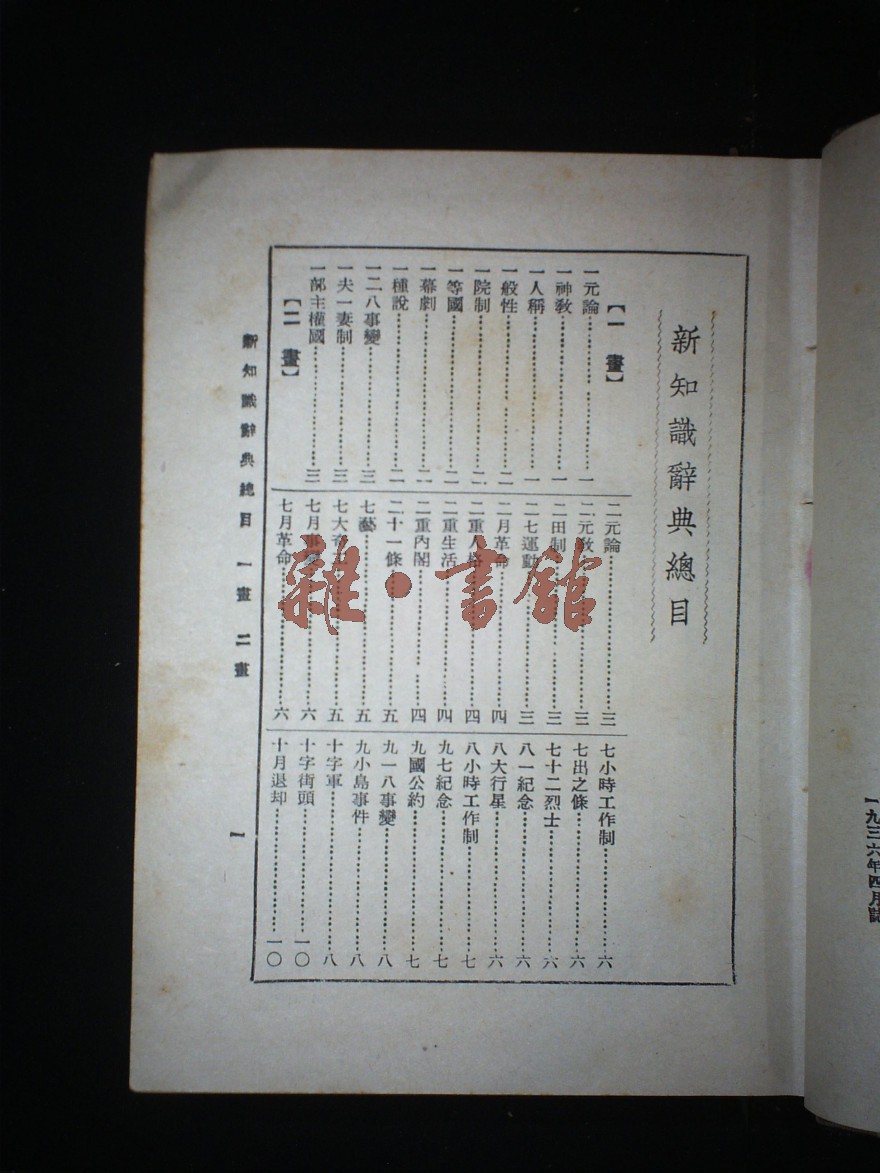 一九三六年四月誌
新知識辭典總目
【一畫】
一元論……一
一神教……一
一人稱……一
一般性……二
一院制……二
一等國……二
一幕劇……二
一種說……二
一二八事變……三
一夫一妻制……三
一部主權國……三
【二畫】
二元論……三
二元教……三
二田制……三
二七運動……三
二月革命……四
二重人格……四
二重生活……四
二重內閣……四
二十一條……五
七藝……五
七大……五
七月事變……六
七月革命……六
七小時工作制……六
七出之條……六
七十二烈士……六
八一紀念……六
八大行星……六
八小時工作制……七
九七紀念……七
九國公約……七
九一八事變……八
九小島事件……八
十字軍……八
十字街頭……一〇
十月退却……一〇
新知識辭典總目 一畫 二畫
1
雜·書館